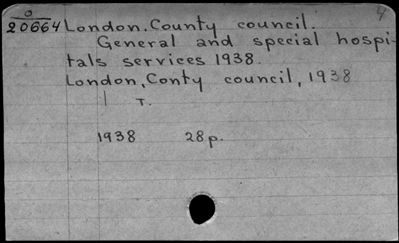 O
20664 London. County council.
General and special hospi-
tals services 1938.
London, Conty council, 1938
1 T.
1938 28p.